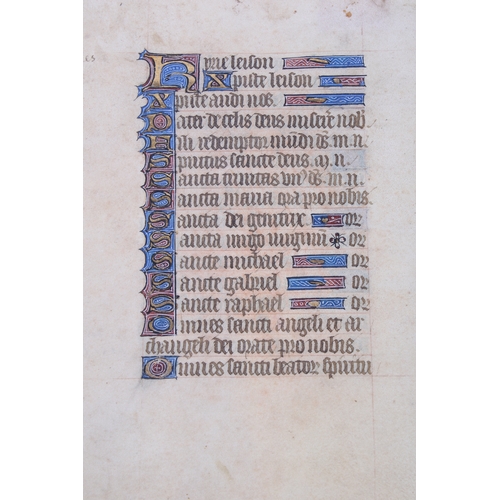 Kyrie leison
Xpiste leison
Xpiste audi nos.
Pater de celis deus miserere nob
Fili redemptor mūdi ds̄. m. n.
Spiritus sancte deus. m. n.
Sancta trinitas vn9 ds̄. m. n.
Sancta maria ora pro nobis
Sancta dei genitrix or
Sancta uirgo uirginū or
Sancte michael or
Sancte gabriel or
Sancte raphael or
Omnes sancti angeli et ar
changeli dei orate pro nobis.
Omnes sancti beator spiritu